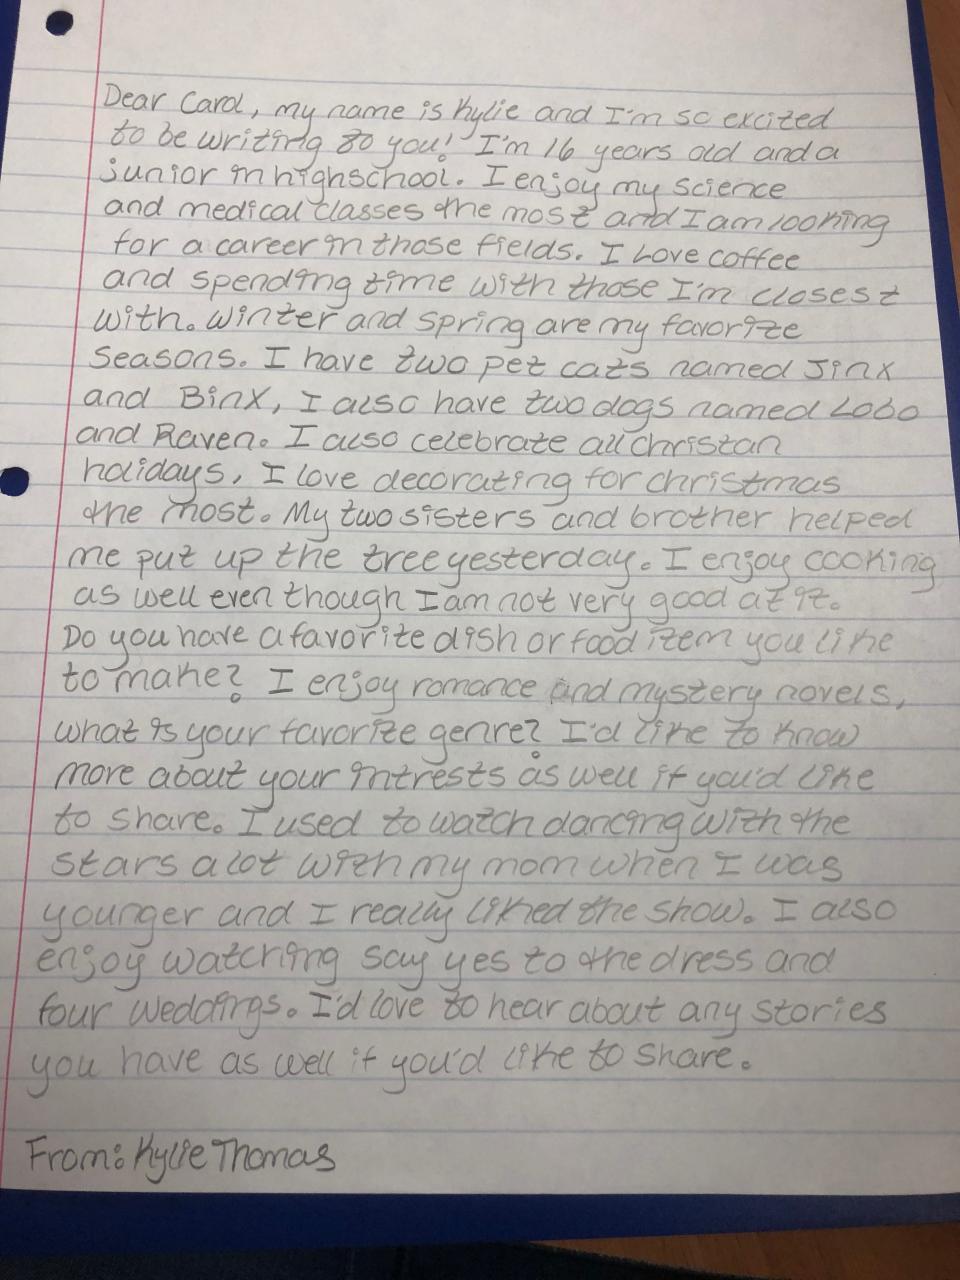 Dear Carol, my name is Kylie and I'm so excited
to be writing to you! I'm 16 years old and a
junior in highschool. I enjoy my science
and medical classes the most and I am looking
for a career in those fields. I Love coffee
and spending time with those I'm closest
with. Winter and spring are my favorite
seasons. I have two pet cats named Jinx
and Binx, I also have two dogs named Lobo
and Raven. I also celebrate all christan
holidays, I love decorating for christmas
the most. My two sisters and brother helped
me put up the tree yesterday. I enjoy cooking
as well even though I am not very good at it.
Do you have a favorite dish or food item you like
to make? I enjoy romance and mystery novels,
what is your favorite genre? I'd like to know
more about your intrests as well if you'd like
to share. I used to watch dancing with the
stars a lot with my mom when I was
younger and I really liked the show. I also
enjoy watching say yes to the dress and
four weddings. I'd love to hear about any stories
you have as well if you'd like to share.
From: Kylie Thomas